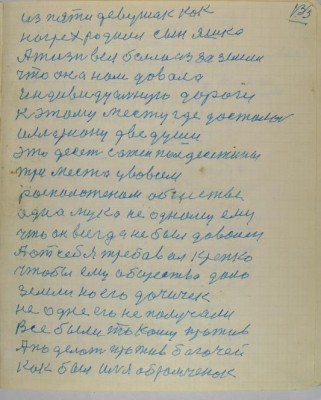 133
из пяти девушак как
на грех родился сын яшка
А жизнь вся была из за земли
что она нам давала
индивидуалную дорогу
к этому месту где досталос
ему две души
это десет сажен пол десетины
три места у всем
расположенам обществе
одна мука не одному ему
что он всегда не был доволен
А от себя требавал крепко
чтобы ему общество дало
земли на его дочичек
не одне его не получали
Все были такому против
А по делам против богачей
как был имя абромченок